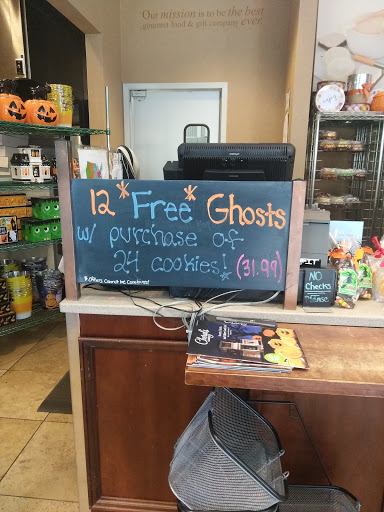 Our mission is to be the best
gourmet food & gift company ever.
12 *Free* Ghosts
w/ purchase of
24 cookies! (31.99)
* offers cannot be combined!
NO
Checks
Please